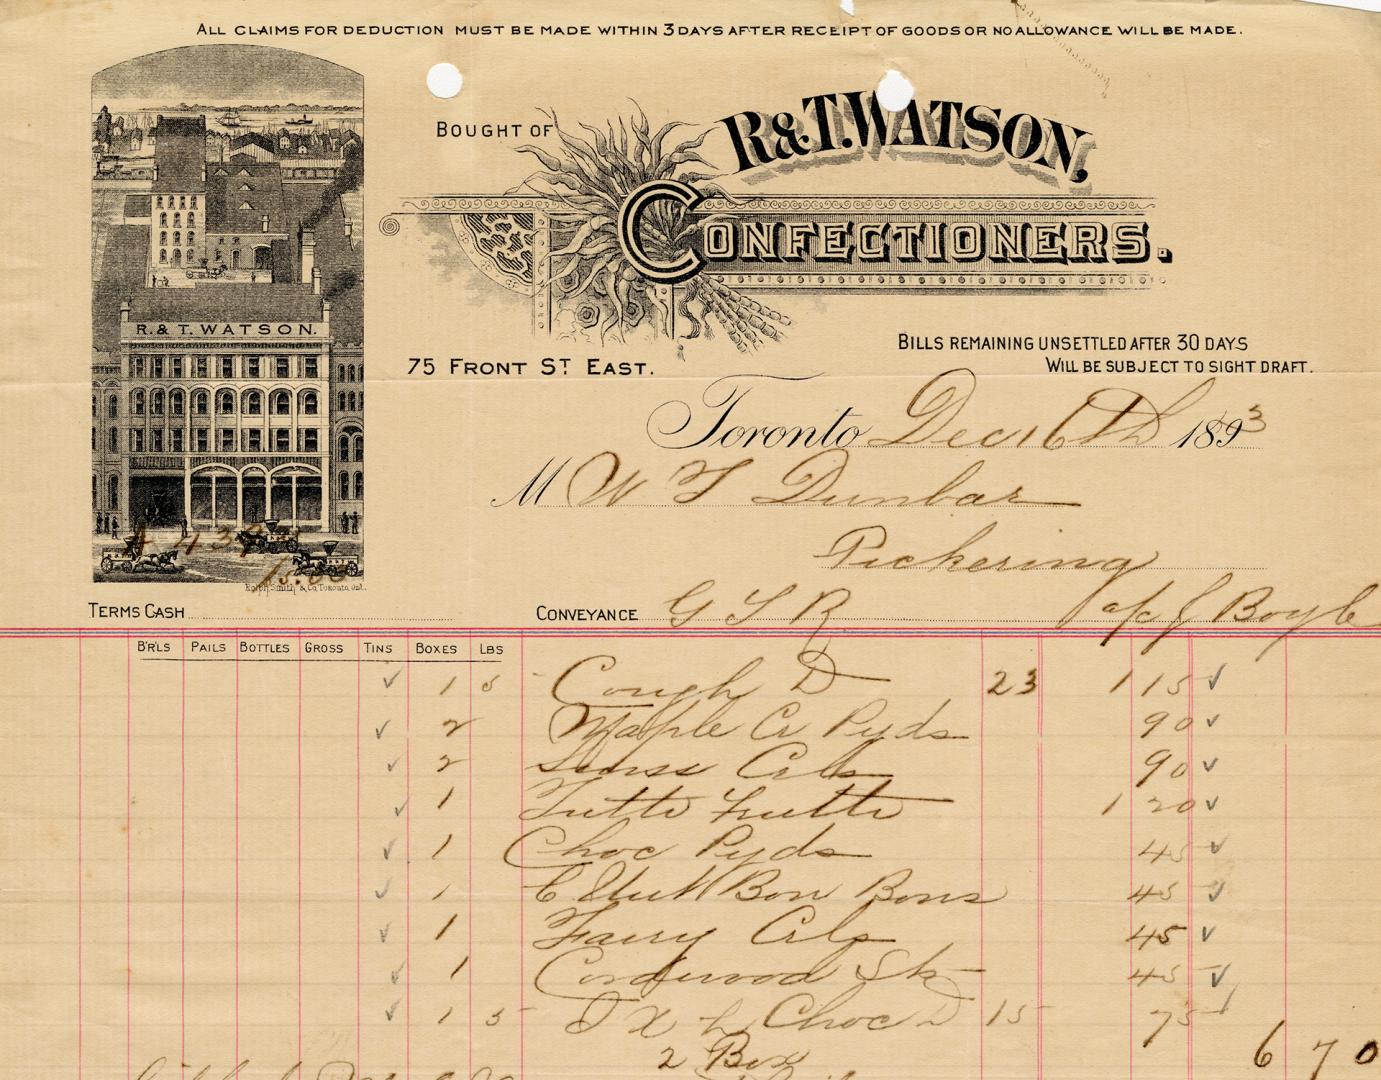 ALL CLAIMS FOR DEDUCTION MUST BE MADE WITHIN 3 DAYS AFTER RECEIPT OF GOODS OR NO ALLOWANCE WILL BE MADE.
BOUGHT OF R. & T. WATSON,
CONFECTIONERS.
R. & T. WATSON.
75 FRONT ST EAST.
BILLS REMAINING UNSETTLED AFTER 30 DAYS
WILL BE SUBJECT TO SIGHT DRAFT.
Toronto Dec 16th 1893
M W T Dunbar
Pickering
Rolph, Smith & Co Toronto, Ont.
TERMS CASH
CONVEYANCE G T R a/c J Boyle
B'R'LS PAILS BOTTLES GROSS TINS BOXES LBS
✓ 1 5 Cough D 23 1 15 ✓
✓ 2 Maple Cr Pyds 90 ✓
✓ 2 Crls 90 ✓
✓ 1 Tutti Frutti 1 20 ✓
✓ 1 Choc Pyds 45 ✓
✓ 1 Bon Bons 45 ✓
✓ 1 Fairy Crls 45 ✓
✓ 1 Cordwood Stk 45 ✓
✓ 1 5 Choc D 15 75 ✓
2 Box 6 70